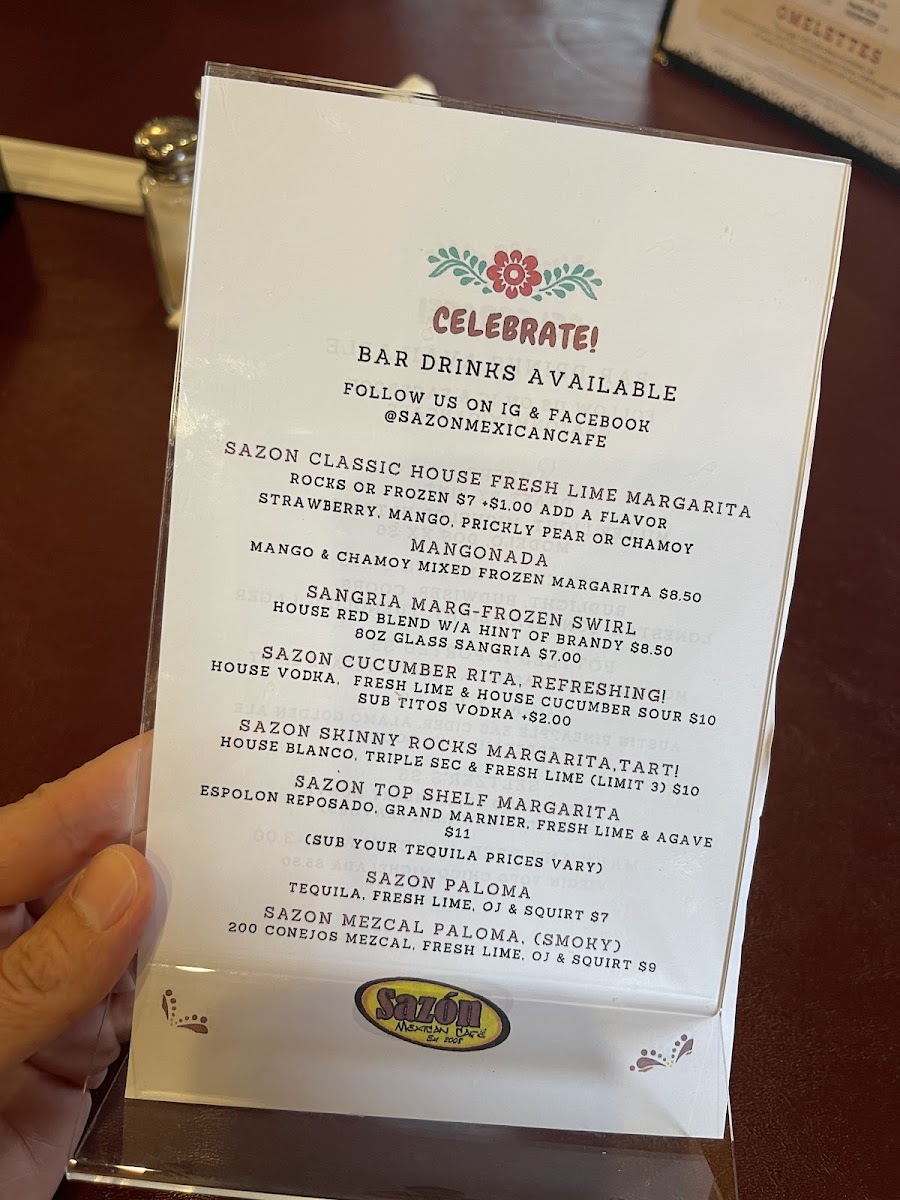 OMELETTES
CELEBRATE!
BAR DRINKS AVAILABLE
FOLLOW US ON IG & FACEBOOK
@SAZONMEXICANCAFE
SAZON CLASSIC HOUSE FRESH LIME MARGARITA
ROCKS OR FROZEN $7 +$1.00 ADD A FLAVOR
STRAWBERRY, MANGO, PRICKLY PEAR OR CHAMOY
MANGONADA
MANGO & CHAMOY MIXED FROZEN MARGARITA $8.50
SANGRIA MARG-FROZEN SWIRL
HOUSE RED BLEND W/A HINT OF BRANDY $8.50
8OZ GLASS SANGRIA $7.00
SAZON CUCUMBER RITA, REFRESHING!
HOUSE VODKA, FRESH LIME & HOUSE CUCUMBER SOUR $10
SUB TITOS VODKA +$2.00
SAZON SKINNY ROCKS MARGARITA,TART!
HOUSE BLANCO, TRIPLE SEC & FRESH LIME (LIMIT 3) $10
SAZON TOP SHELF MARGARITA
ESPOLON REPOSADO, GRAND MARNIER, FRESH LIME & AGAVE
$11
(SUB YOUR TEQUILA PRICES VARY)
SAZON PALOMA
TEQUILA, FRESH LIME, OJ & SQUIRT $7
SAZON MEZCAL PALOMA, (SMOKY)
200 CONEJOS MEZCAL, FRESH LIME, OJ & SQUIRT $9
Sazón
MEXICAN CAFÉ
Est 2008